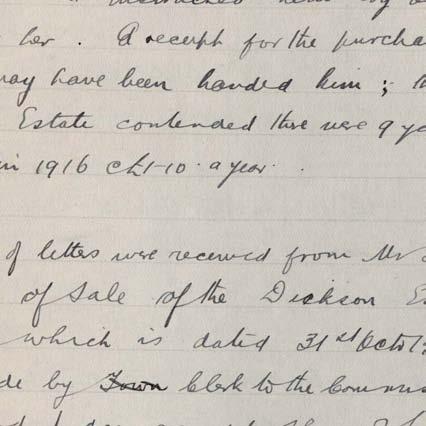 her. A receipt for the purcha
may have been handed him; th
Estate contended there were 9 ye
in 1916 @ £1-10 a year.
of letters were received from Mr
of Sale of the Dickson Es
which is dated 31st Octr
de by Town Clerk to the Commis